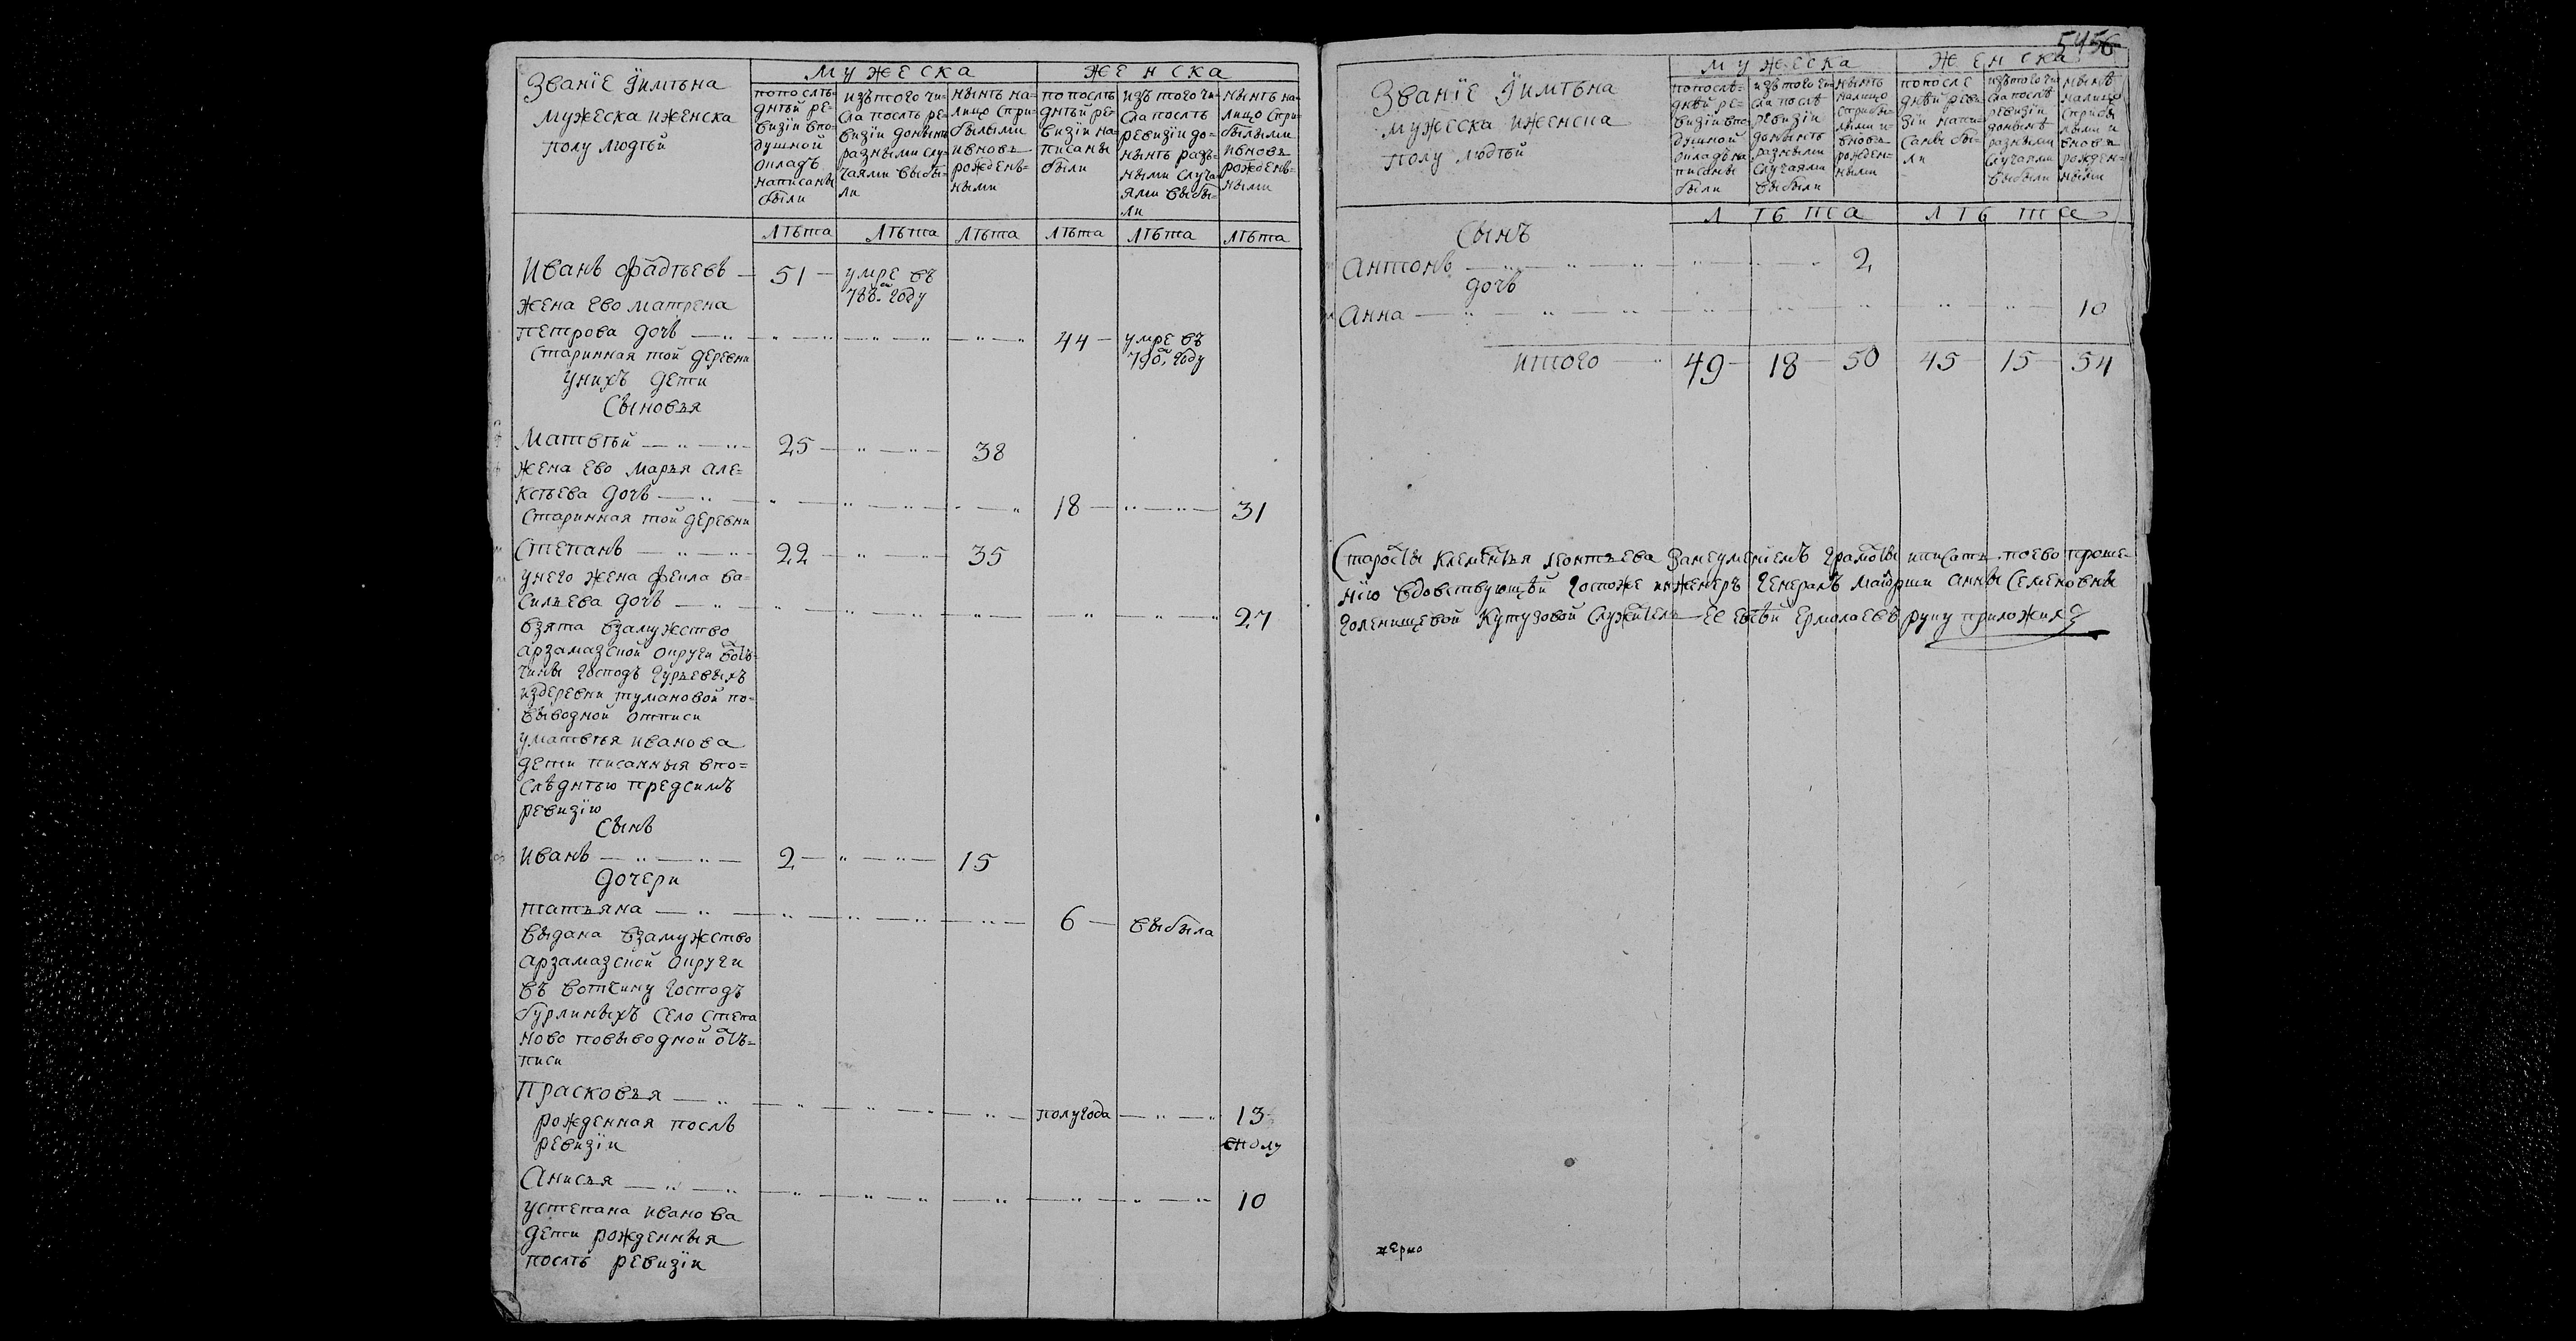 Званїе Їимѣна
мужеска иженска
полу людѣй
мужеска
женска
попослѣ-
днѣй ре-
визїи впо-
душной
окладъ
написаны
были
изътого чи-
сла послѣ ре-
визїи донынѣ
разными слу-
чаями выбы-
ли
нынѣ на-
лицо спри-
былыми
ивновь
рожденъ-
ными
попослѣ
днѣй ре-
визїи на-
писаны
были
изъ того чи-
сла послѣ
ревизїи до-
нынѣ разъ-
ными случа-
ями выбы-
ли
нынѣ на
лицо спри-
былыми
ивновь
рожденъ-
ными
лѣта лѣта лѣта лѣта лѣта лѣта
Иванъ фадѣевъ 51 умре въ
788.м году
жена ево матрена
петрова дочь 44 умре въ
790.м году
старинная той деревни
унихъ дети
сыновья
Матвѣй 25 38
жена ево марья але-
ксѣева дочь 18 31
старинная той деревни
Степанъ 22 35
унего жена феила ва-
сильева дочь 27
взята взамужство
арзамазской округи вотъ-
чины господъ гурьевыхъ
издеревни тумановой по-
выводной отписи
уматвѣя иванова
дети писанныя впо-
слѣднѣю предсимъ
ревизїю
сынъ
иванъ 2 15
дочери
татьяна 6 выбыла
выдана взамужство
арзамазской округи
въ вотчину господъ
бурлиныхъ село степа
ново повыводной отъ-
писи
Прасковья полугода 13
сполу
рожденная послѣ
ревизїи
Анисья 10
устепана иванова
дети рожденныя
послѣ ревизїи
5456
Званїе Їимѣна
мужеска иженска
полу людѣй
мужеска
женска
попослѣ-
днѣй ре-
визїи впо-
душной
окладъ на
писаны
были
изъ того чи-
сла послѣ
ревизїи
донынѣ
разными
случаями
выбыли
нынѣ
налицо
сприбы-
лыми и
вновь
рожден-
ными
попосле
днѣй реви
зїи напи-
саны бы-
ли
изътого чи
сла послѣ
ревизїи
донынѣ
разными
случаями
выбыли
нынѣ
налицо
сприбы
лыми и
вновь
рожден-
ными
лѣта лѣта
Сынъ
Антонъ 2
дочь
Анна 10
итого 49 18 50 45 15 54
Старосты клементья леонтьева Занеумѣнїемъ грамоты писать поево проше-
нїю вдовствующѣй госпоже инженеръ генералъ маїорши анны Семеновны
голенищевой Кутузовой служитель Ермолаевъ руку приложилъ